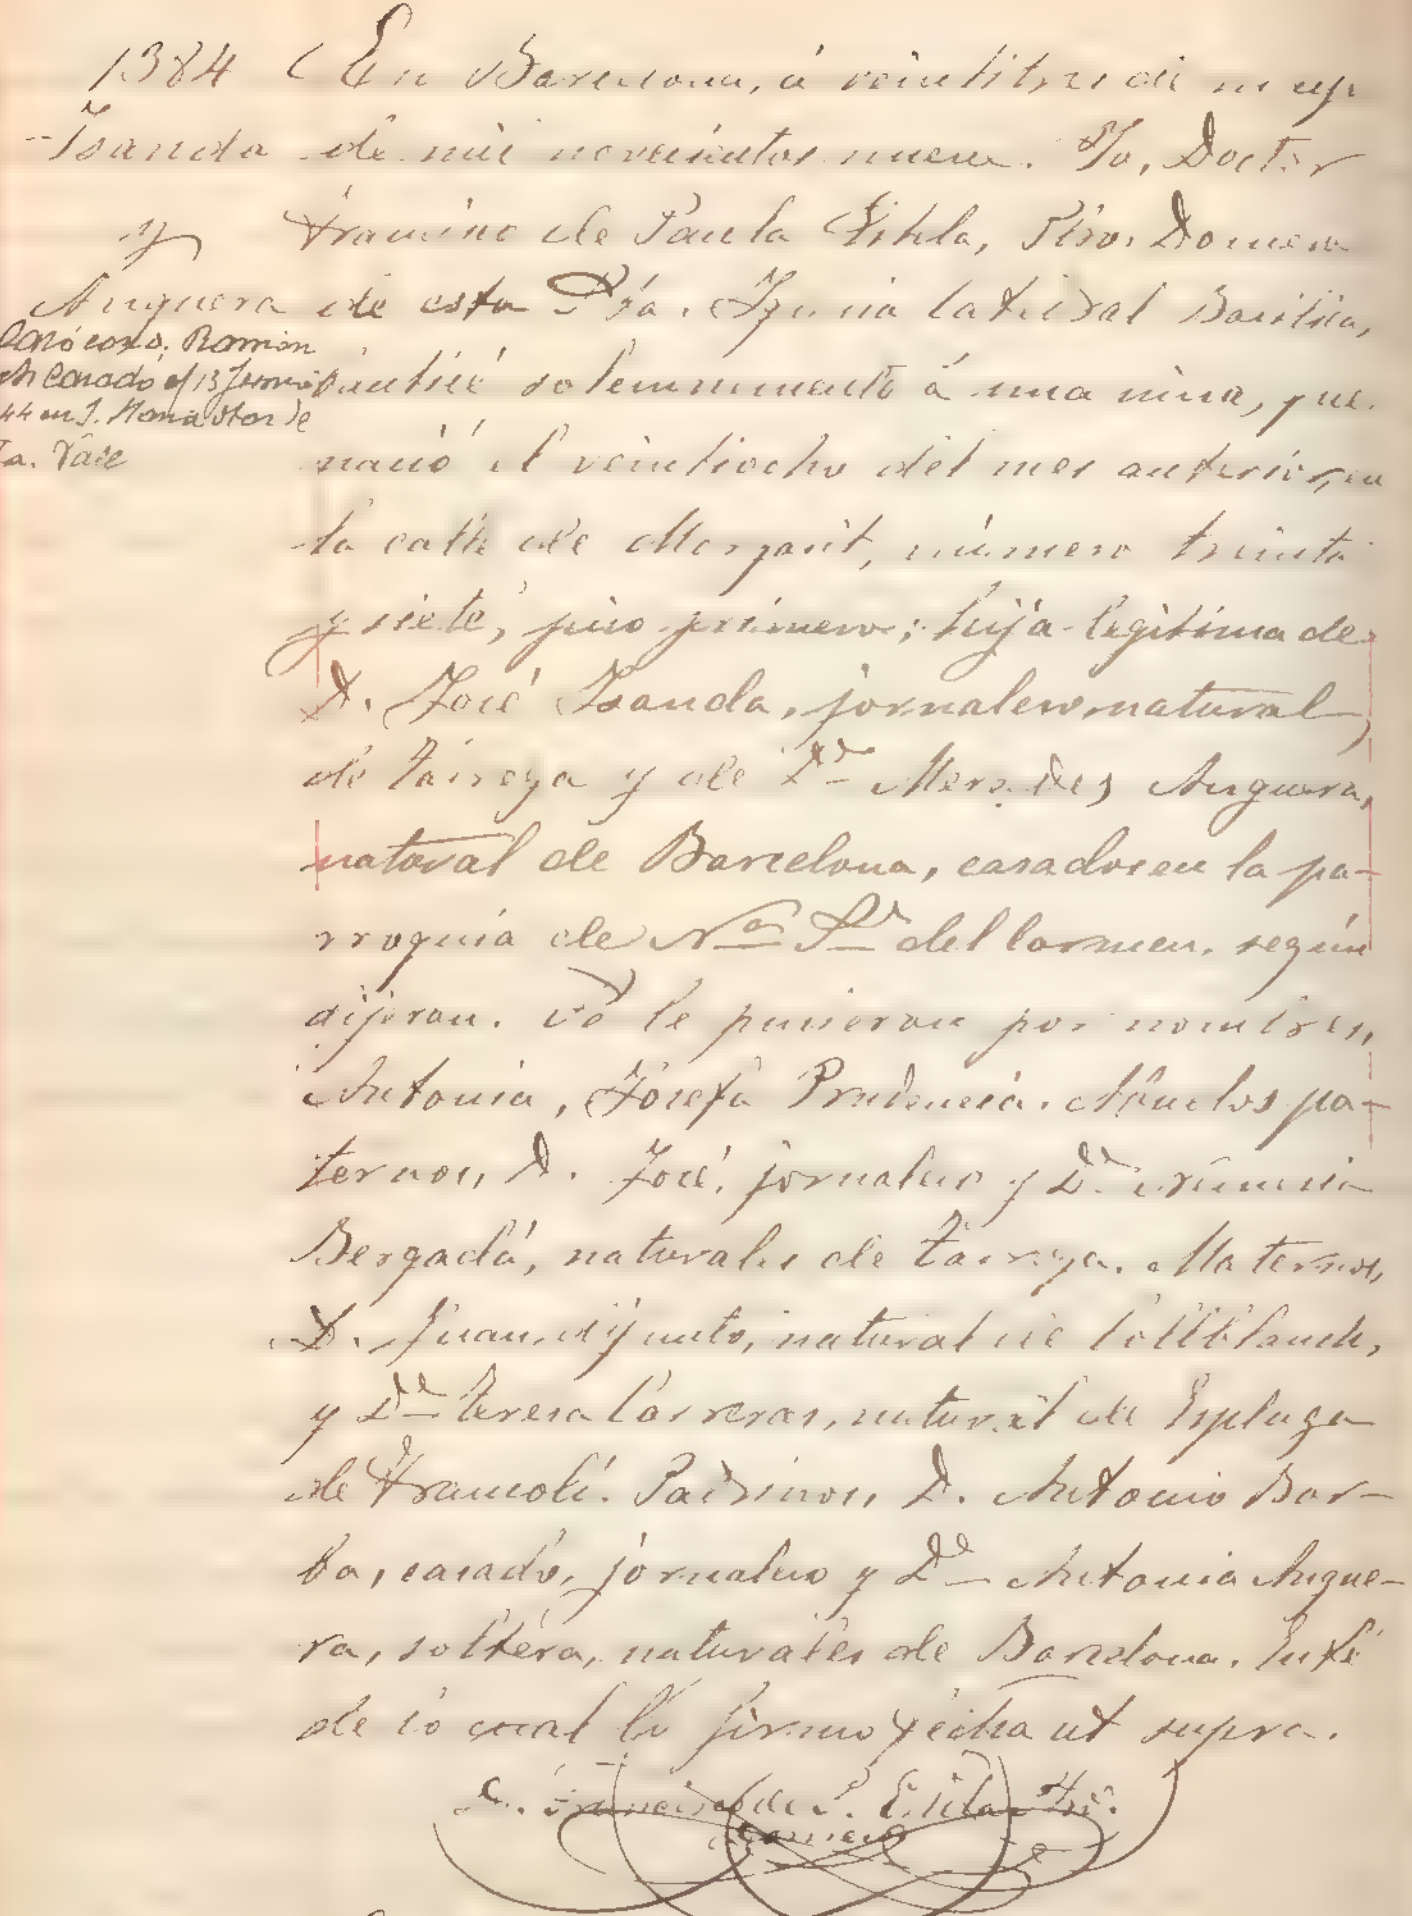 1384
Isanda
y
Anguera
Casó con D. Ramón
Casado el 13 Junio
44 en S. María Mar de
Vale
En Barcelona, á veintitres de mayo
de mil novecientos nueve. Yo, Doctor
Francisco de Paula Pbro. Domero
de esta Sta. Iglesia Catedral Basílica,
bauticé solemnemente á una niña, que
nació el veintiocho del mes anterior, en
la calle de Margarit, número treinta
y siete, piso primero; hija legítima de
D. José Isanda, jornalero, natural
de Tárrega y de Dª Mercedes Anguera,
natural de Barcelona, casados en la pa-
rroquia de Nª Sª del Carmen, según
dijeron. Se le pusieron por nombres,
Antonia, Josefa Prudencia. Abuelos pa-
ternos, D. José, jornalero y Dª
Bergadá, naturales de Tárrega. Maternos,
D. Juan, difunto, natural de Collblanch,
y Dª Teresa Carreras, natural de Espluga
de Francolí. Padrinos, D. Antonio Bar-
ba, casado, jornalero y Dª Antonia Angue-
ra, soltera, naturales de Barcelona. En fé
de lo cual lo firmo fecha ut supra.
Francisco de P. Pbro.
Domero